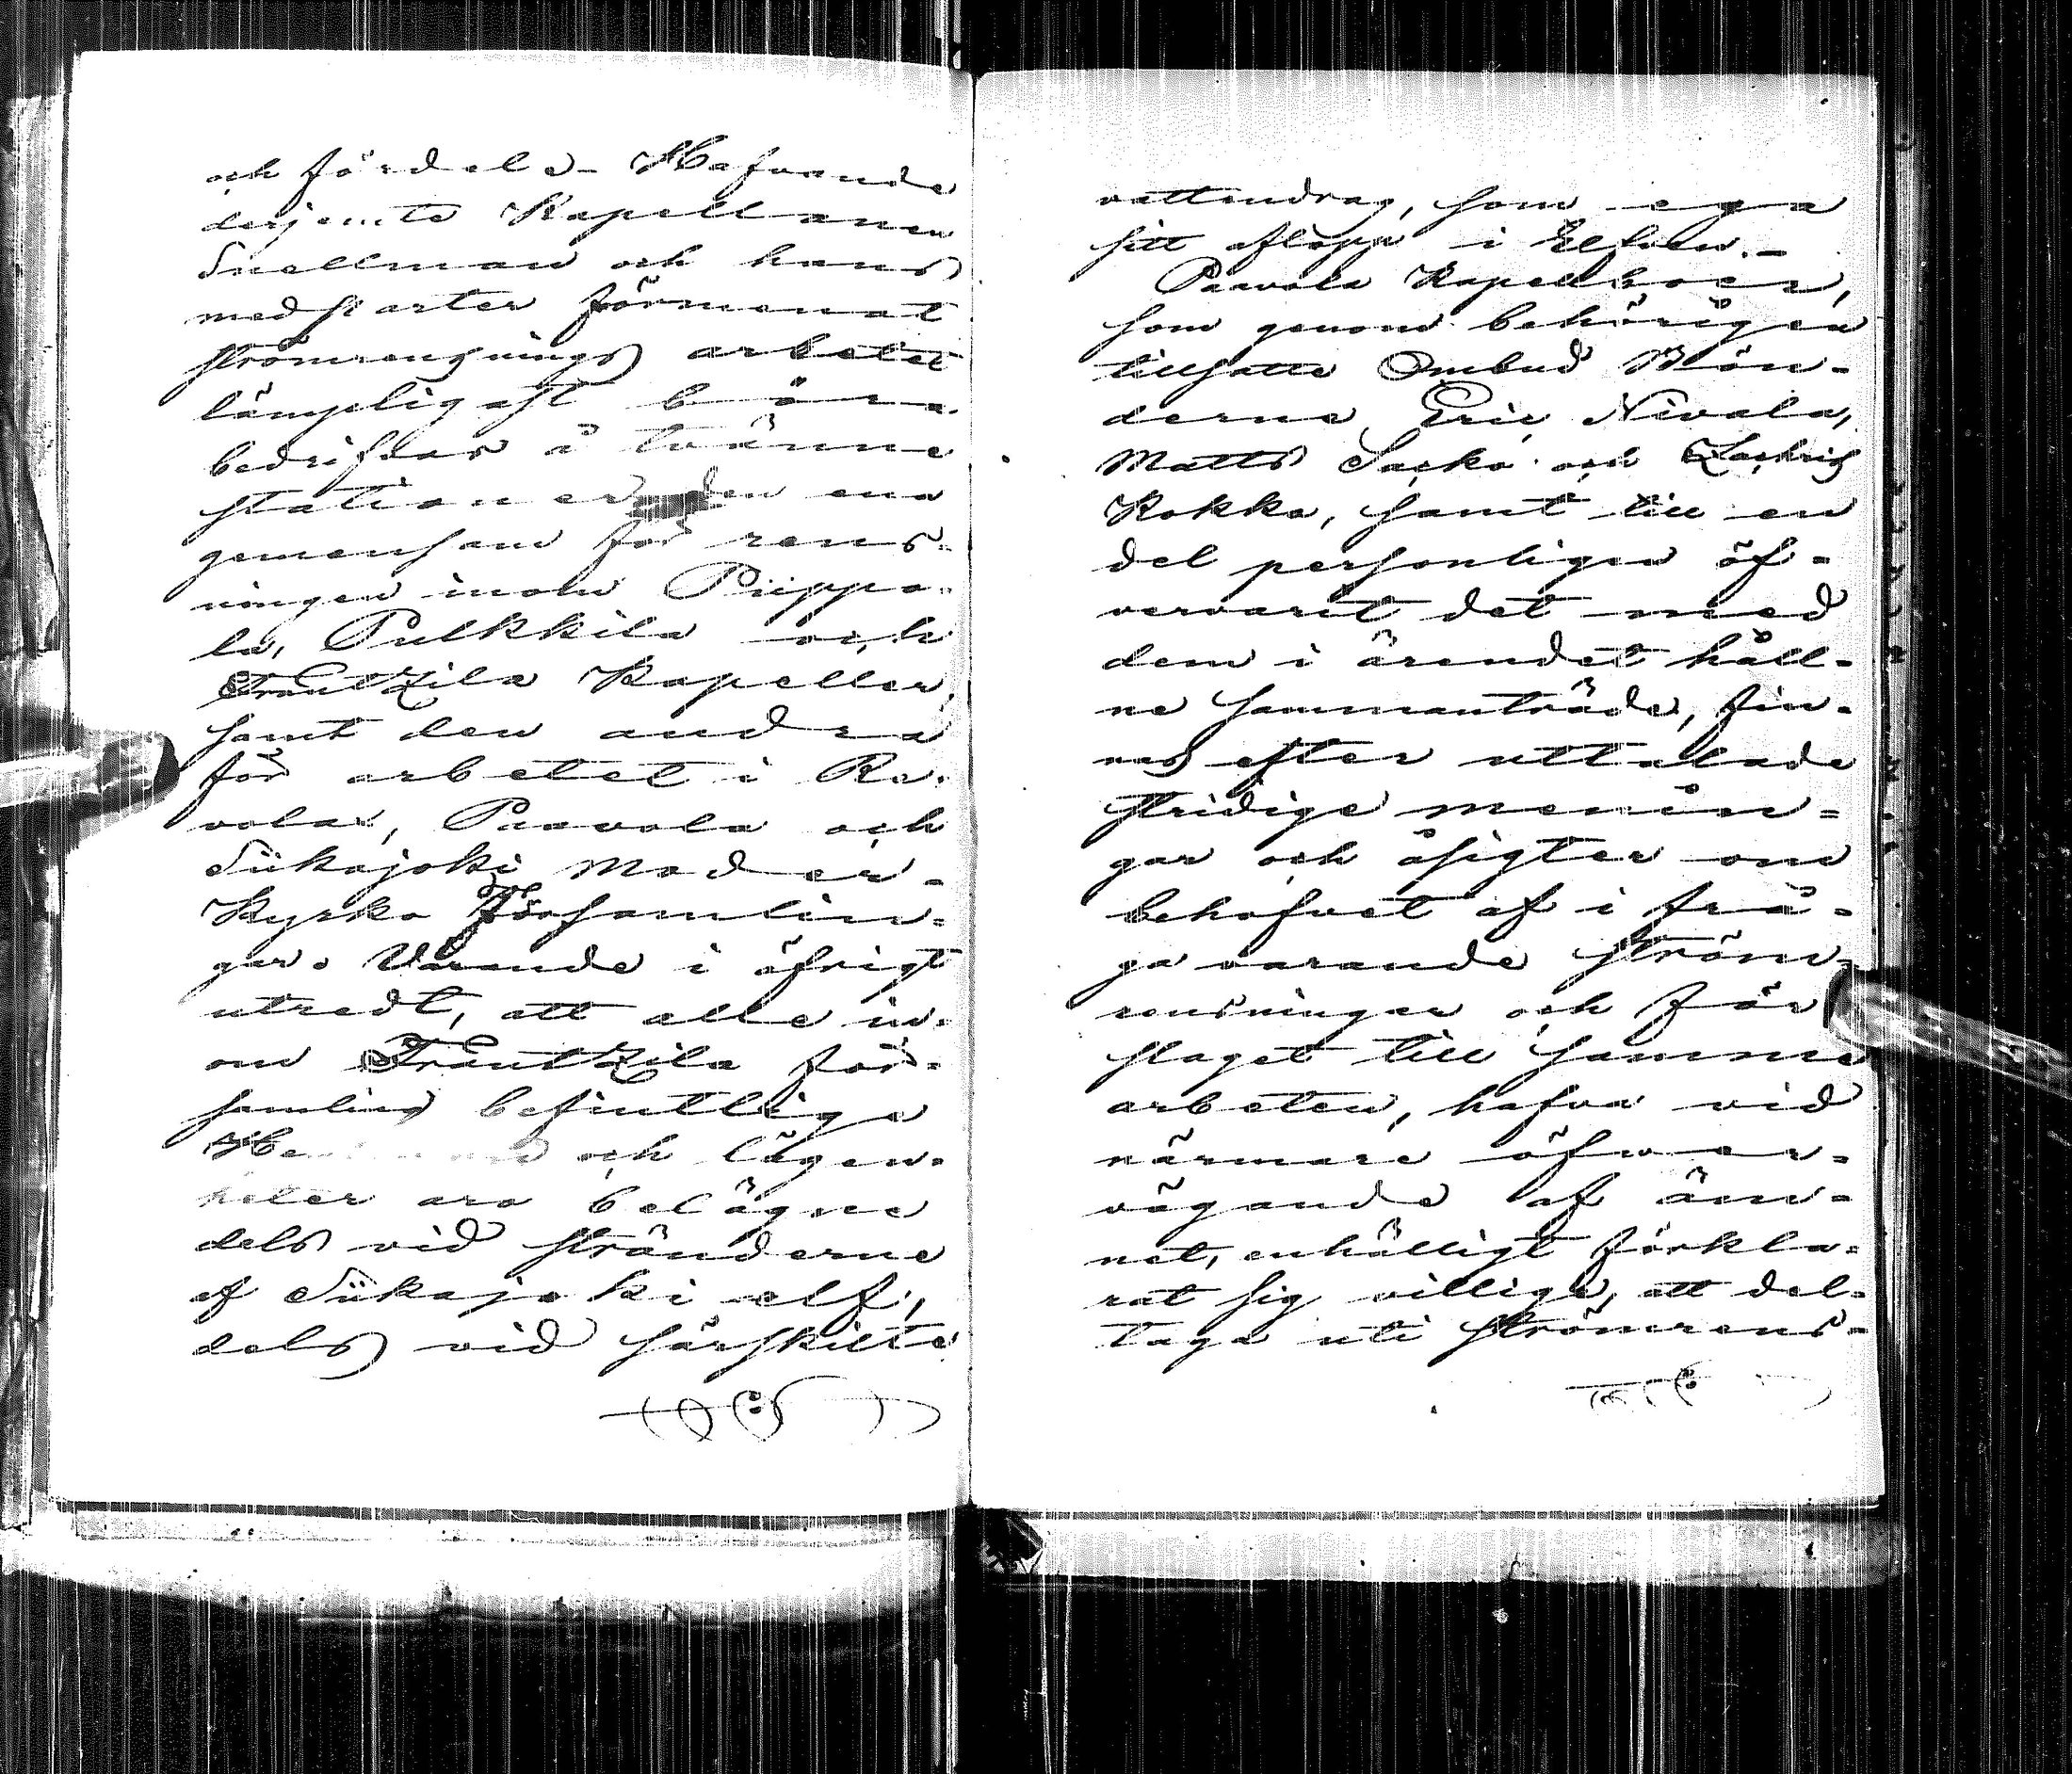 och fördel. – Hafvande
derjemte Kapellanen
Snellman och hans
medparter förmenat
strömrensnings arbetet
lämpeligast böra
bedrifvas å tvänne
stationer, den ena
gemensam för rens-
ningen inom Piippo-
la, Pulkkila och
Frantzila Kapeller,
samt den andra
för arbetet i Re-
volax, Paavola och
Siikajoki Moder-
Kyrko Församlin-
gar. Varande i öfrigt
utredt, att alle in-
om Frantzila för-
samling befintliga
och lägen-
heter äro belägne
dels vid stränderne
af Siikajoki elf,
dels vid särskilte
vattendrag, som ega
sitt aflopp i Elfven. –
Paavola Kapellboer,
som genom behörigen
tillsatte Ombud Bön-
derne Eric Nivala,
Matts Sacko och Zachris
Kokko, samt till en
del personligen öf-
vervarit det med
dem i ärendet håll-
ne sammanträde, fin-
nas efter uttalade
stridige menin-
gar och åsigter om
behofvet af i frå-
ga varande ström-
rensningar och för
slaget till samma
arbeten, hafva vid
närmare öfver-
vägande af äm-
net, enhälligt förkla-
rat sig villige, att del-
taga uti strömrens-